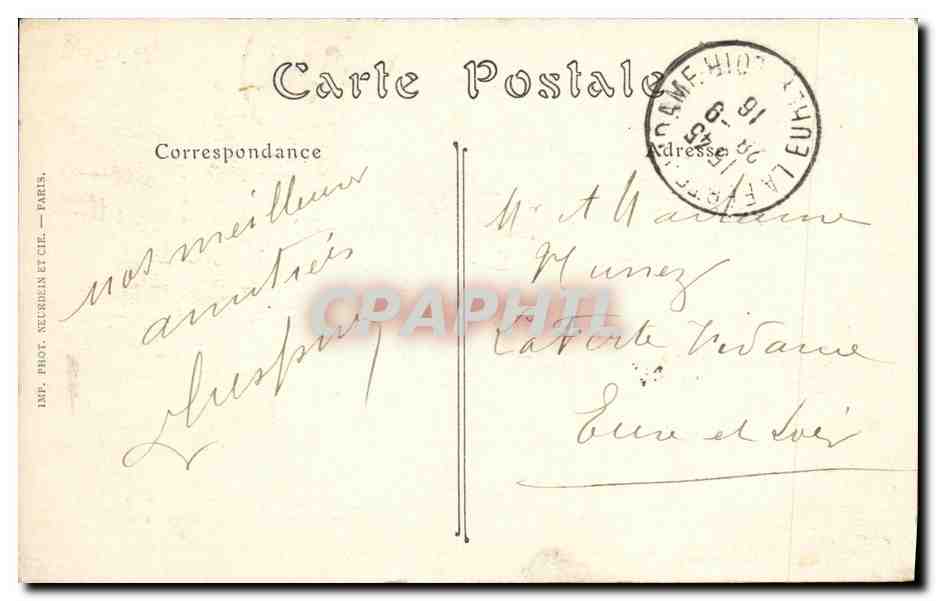 Carte Postale
Correspondance
Adresse
IMP. PHOT. NEURDEIN ET CIE. — PARIS.
LA FERTE VIDAME EURE ET LOIR
15 45
28 -9
16
nos meilleures
amitiés
Mr & Madame
La Ferte Vidame
Eure et Loir
CPAPHIL